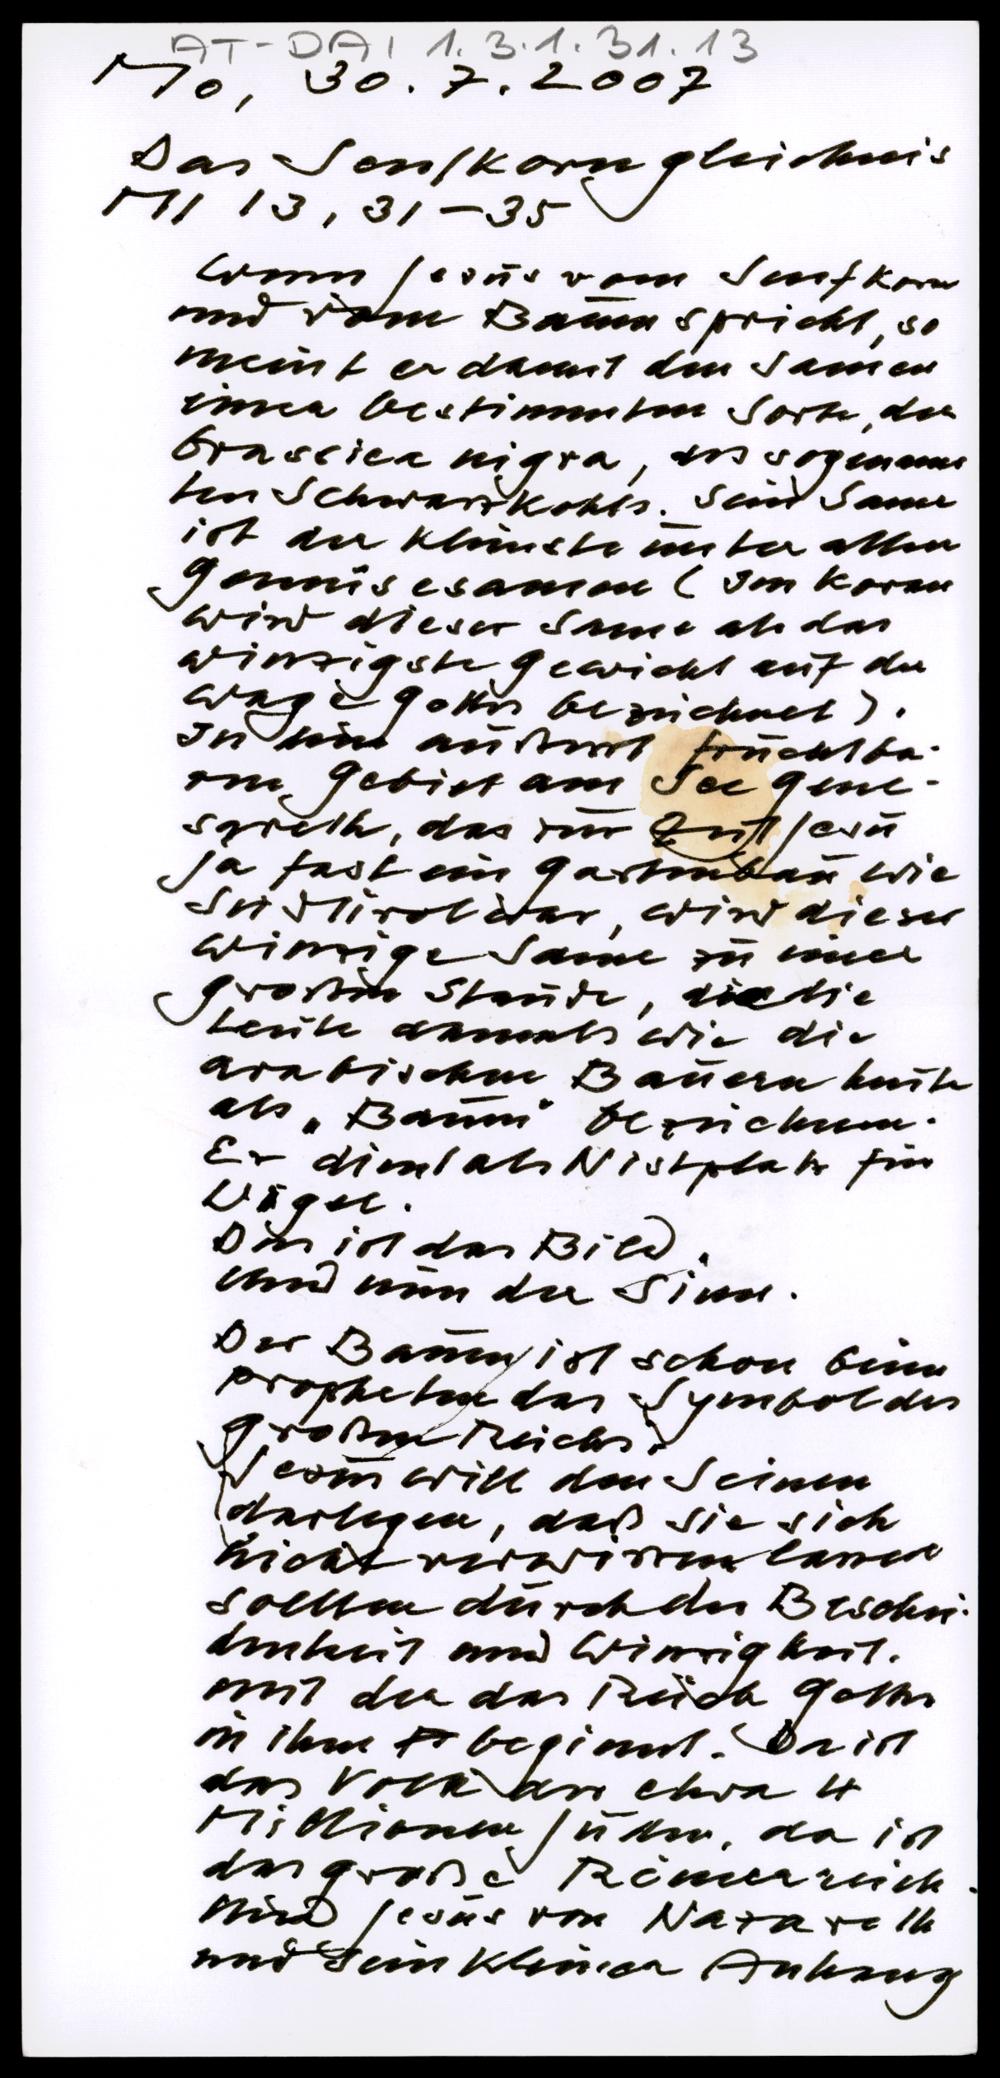 AT-DAI 1.3.1.31.13
Mo, 30.7.2007
Das Senfkorngleichnis
Mt 13, 31-35
Wenn Jesus vom Senfkorn
und vom Baum spricht, so
meint er damit den Samen
einer bestimmten Sorte, der
brassica nigra, des sogenann
ten Schwarzkohls. Sein Same
ist der kleinste unter allen
Gemüsesamen (Im Koran
wird dieser Same als das
winzigste Gewicht auf der
Wage Gottes bezeichnet).
In dem äußerst fruchtba-
ren Gebiet am See Gene-
sareth, das zur Zeit Jesu
ja fast ein Gartenbau wie
Südtirol war, wird dieser
winzige Same zu einer
großen Staude, die die
Leute damals wie die
arabischen Bauern heute
als „Baum" bezeichnen.
Er dient als Nistplatz für
Vögel.
Das ist das Bild.
Und nun der Sinn.
Der Baum ist schon beim
Propheten das Symbol des
großen Reichs.
Jesus will den Seinen
darlegen, daß sie sich
nicht verwirren lassen
sollten durch die Beschei-
denheit und Winzigkeit.
mit der das Reich Gottes
in ihm beginnt. Da ist
das Volk der etwa 4
Millionen Juden, da ist
das große Römerreich.
Und Jesus von Nazareth
und sein kleiner Anhang